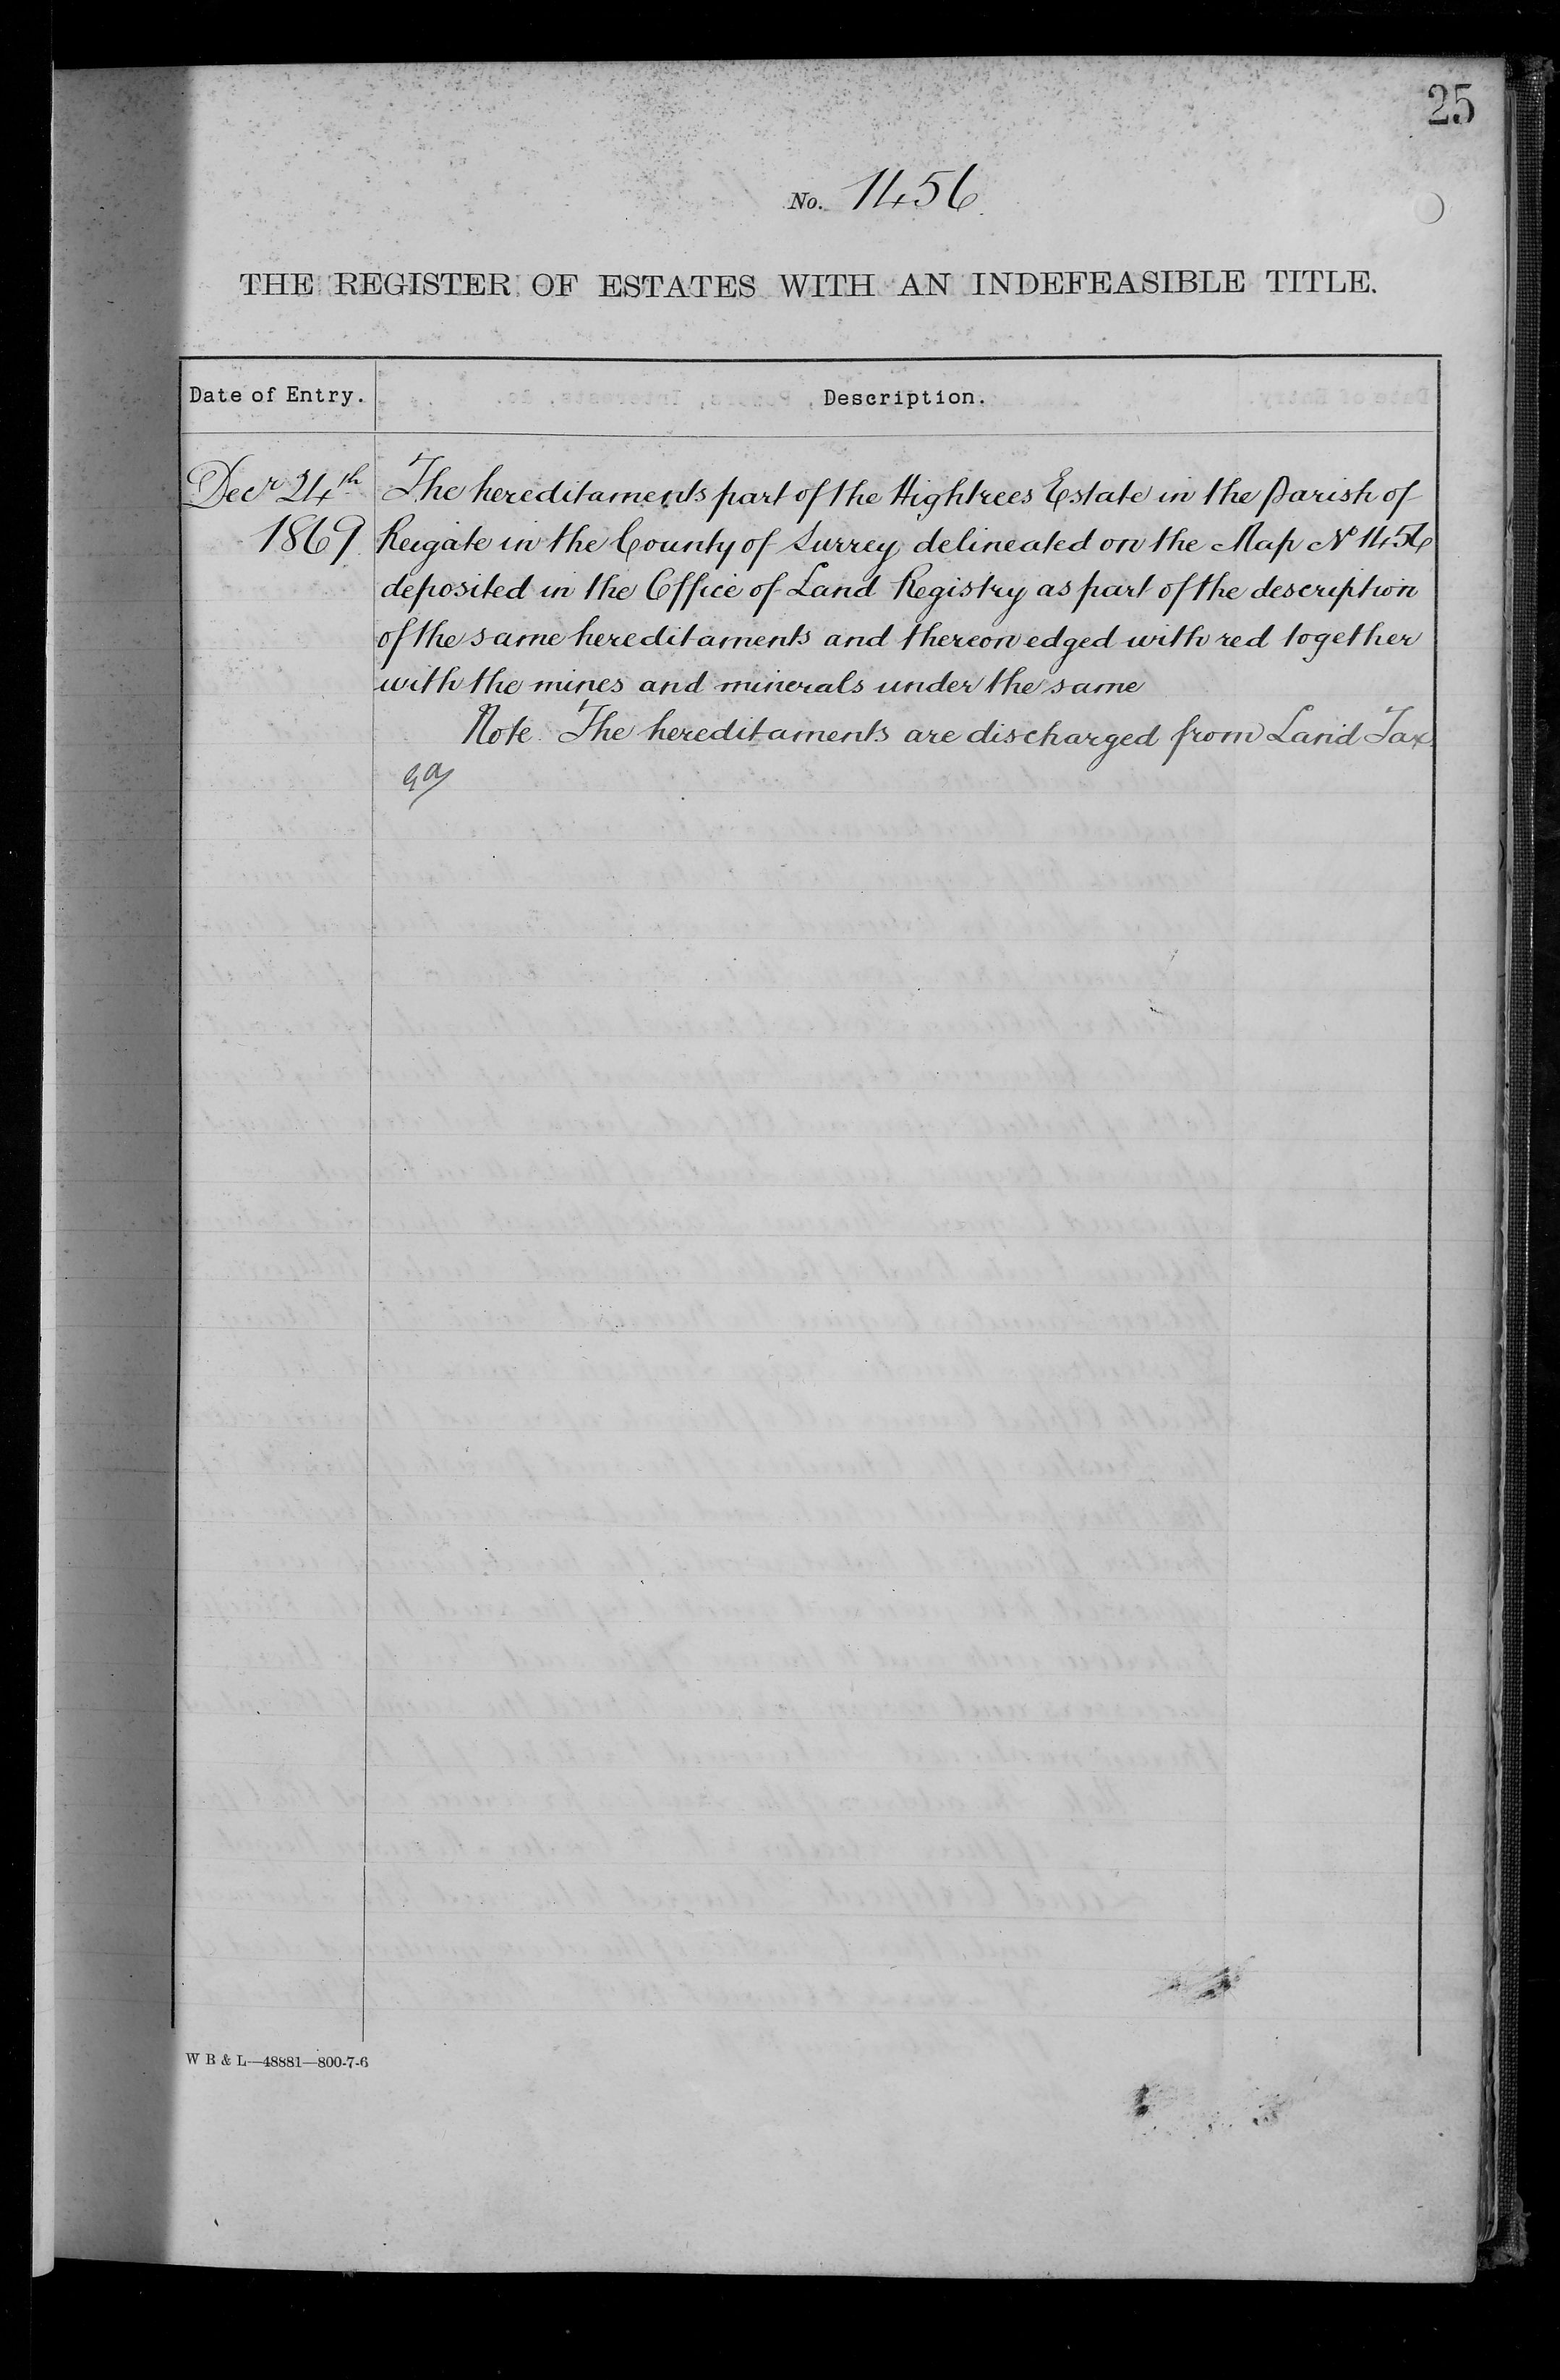 25
No. 1456
THE REGISTER OF ESTATES WITH AN INDEFEASIBLE TITLE.
Date of Entry. Description.
Decr 24th The hereditaments part of the Hightrees Estate in the Parish of
1869 Reigate in the County of Surrey delineated on the Map No 1456
deposited in the Office of Land Registry as part of the description
of the same hereditaments and thereon edged with red together
with the mines and minerals under the same
Note. The hereditaments are discharged from Land Tax.
W B & L—48881—800-7-6